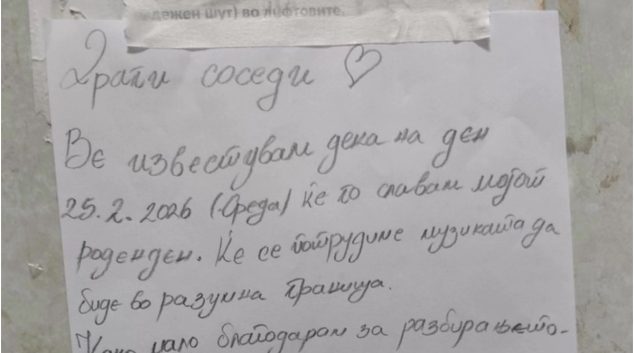 дежен шут) во лифтовите.
Драги соседи ♡
Ве известувам дека на ден
25.2.2026 (Среда) ќе го славам мојот
роденден. Ќе се потрудиме музиката да
биде во разумна граница.
мало благодарам за разбирањето.